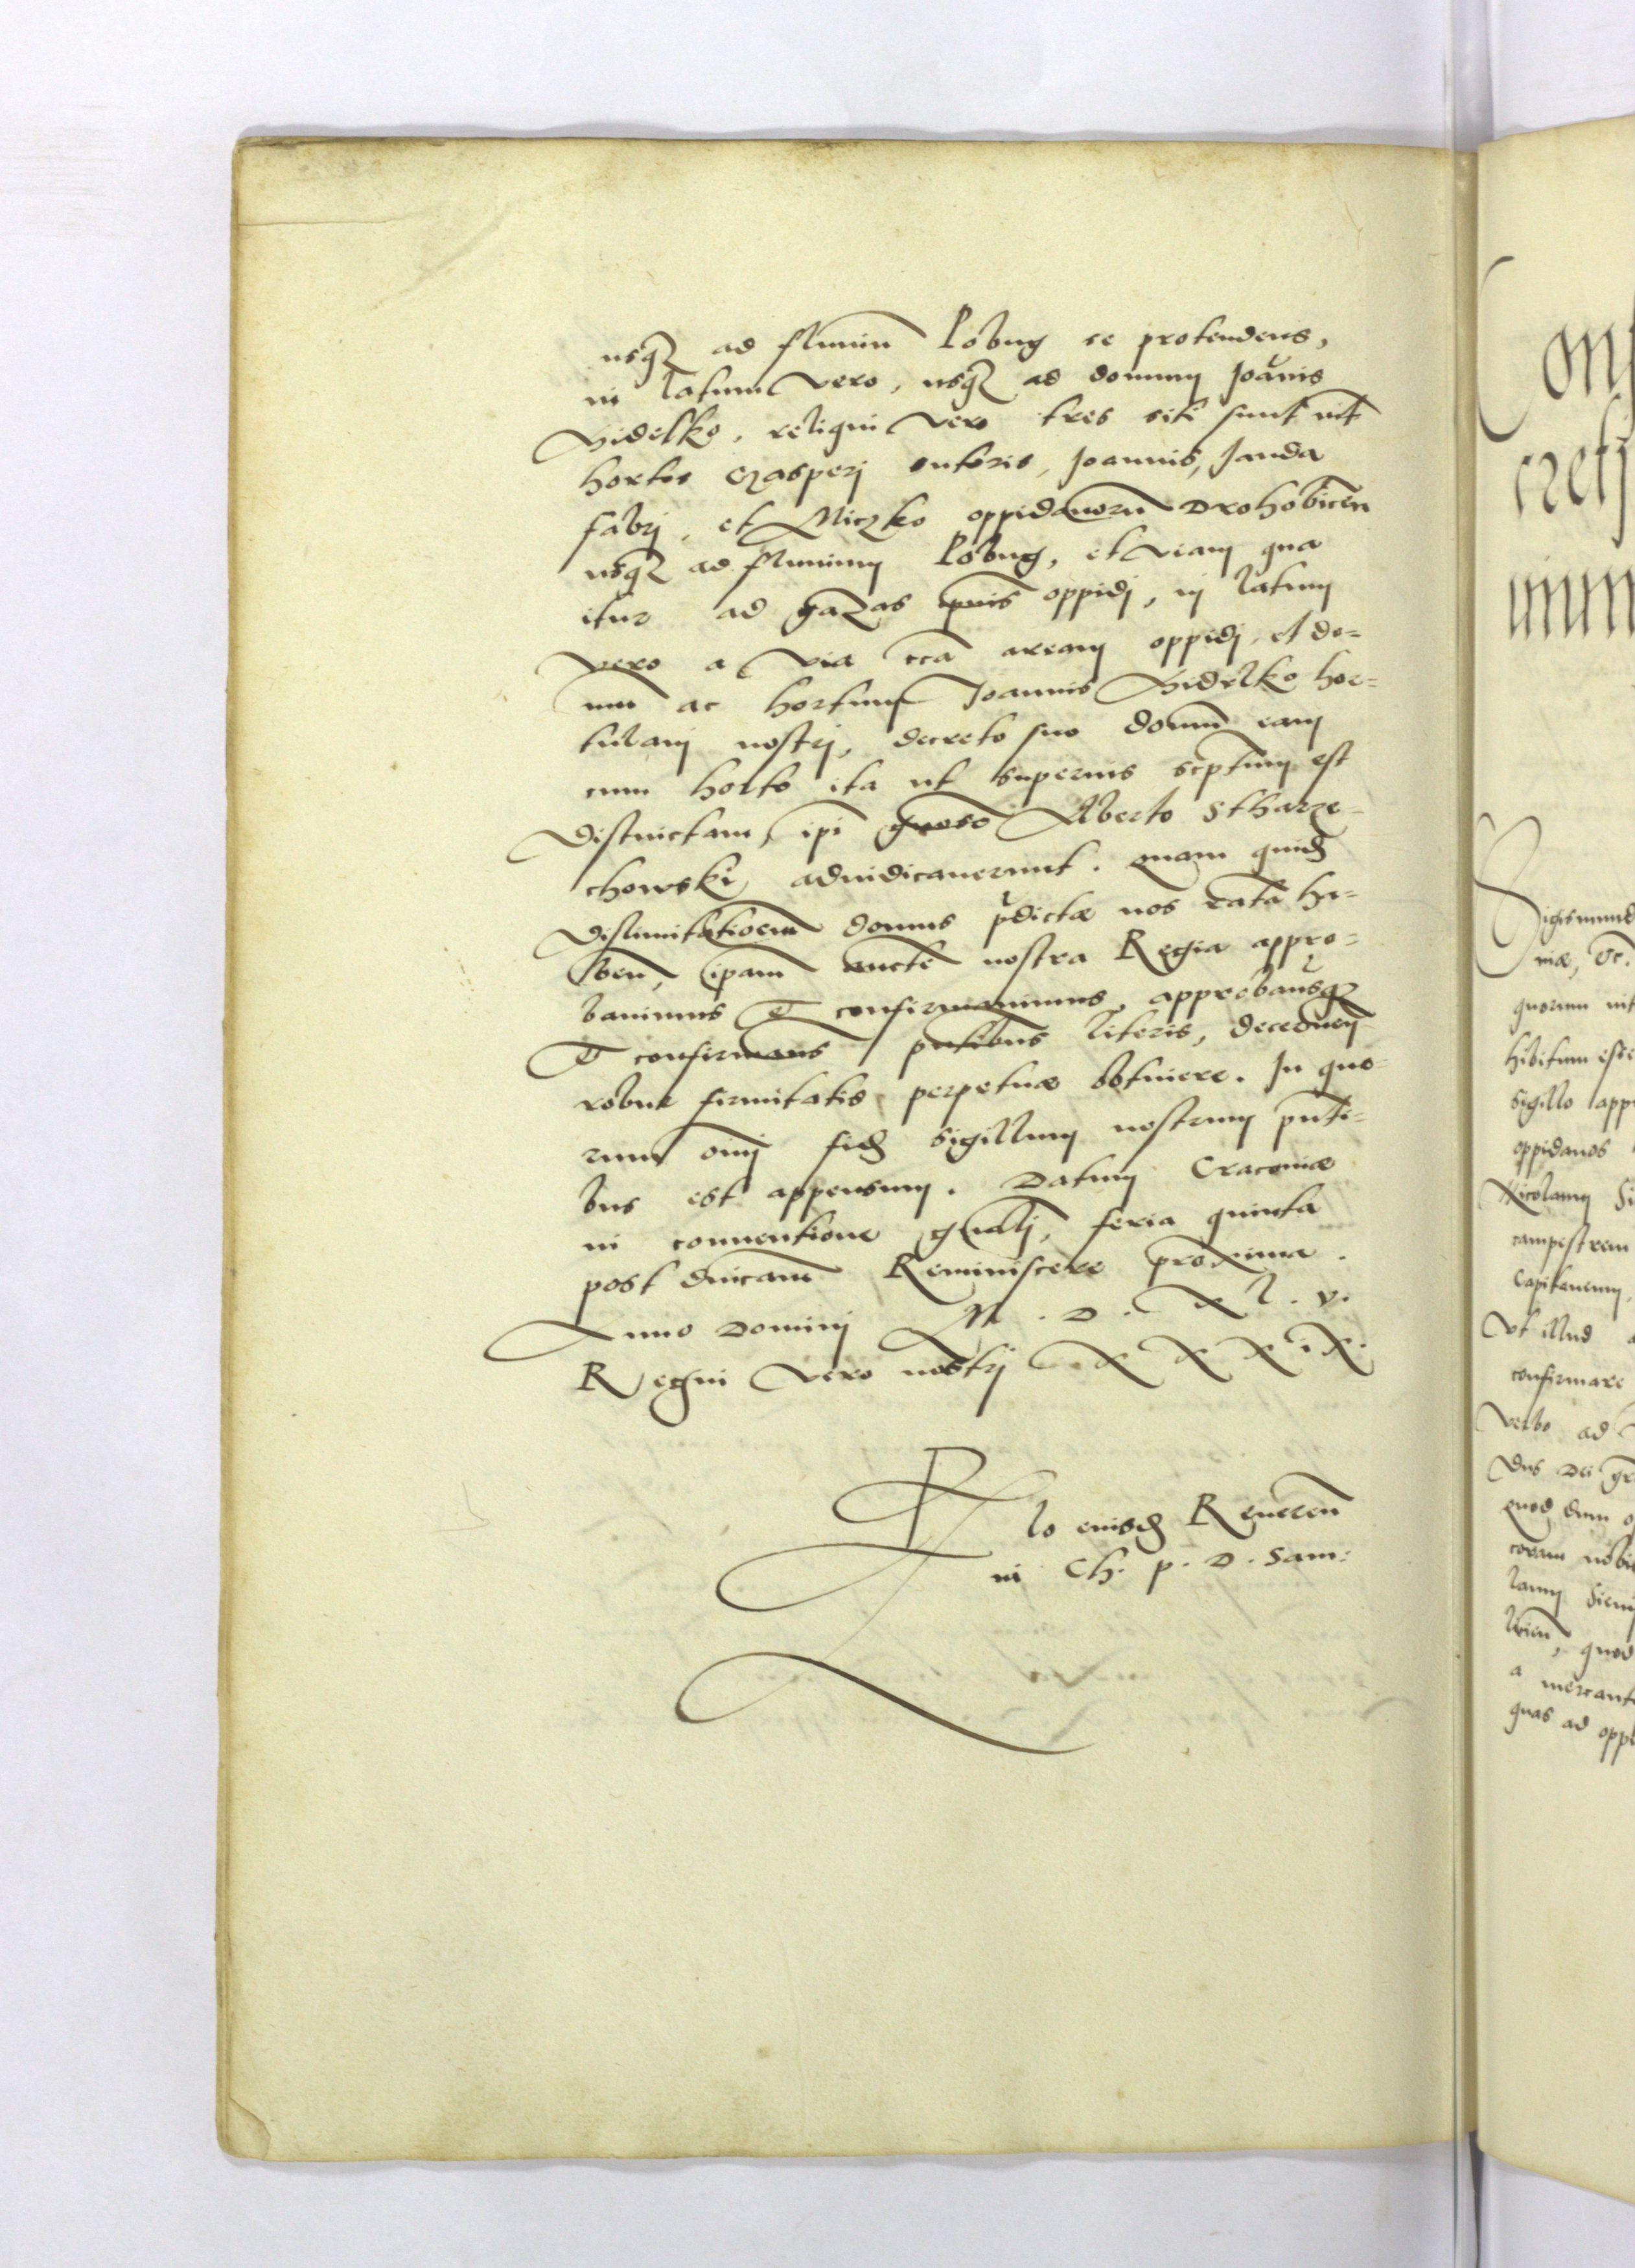 usq₃ ad flumen Lobug se protendens,
in latum vero, usq₃ ad domum Joãnis
Videlko, reliqui vero tres siti sunt int̃
hortos Czasperj sutoris, Joannis, Janda
fabrj, et Miczko oppidanorũ Drohobicen̄
usq₃ ad flumium Lobug, et viam qua
itur ad gazas oppidj, in latum
vero a via cca aream oppidj, et do=
mũ ac hortum Joannis Videlko hor=
tulanj nostrj, decreto suo domũ eam
cum horto ita ut superius scptum est
distinctam, ipi gñoso Alberto Stharze=
chowski adiudicauerunt. Quam quidẽ
dislimitatioem̃ domus p̃dictæ nos ratã ha=
ben̄, ipam̃ aucte nostra Regia appro=
bauimus et confirmauimus, approbam̃usq₃
et confirmam̃us pñtibus literis, decernen̄
robur firmitatis perpetuæ obtinere. In quo=
rum om̃j fidẽ sigillum nostrum pñti=
bus est appensum. Datum Cracouiæ
in conuentione gñalj, feria quinta
post dnicam̃ Reminiscere proxima.
Anno Dominj M. D. X L. v.
Regni vero nostrj X X X i X.
Rlo eiusdẽ Reueren̄
in Ch. p. D. Sam:
Cons
cretj
mun
Sigismund
niæ, etc.
quorum int
hibitum esse
sigillo app
oppidanos
Nicolaum Si
campestrem
Capitaneum,
Vt illud a
confirmare
verbo ad
Dns Dei gr
Quod dum o
coram nobi
laum Sieni
lrien̄, quod
a mercant
quas ad oppi